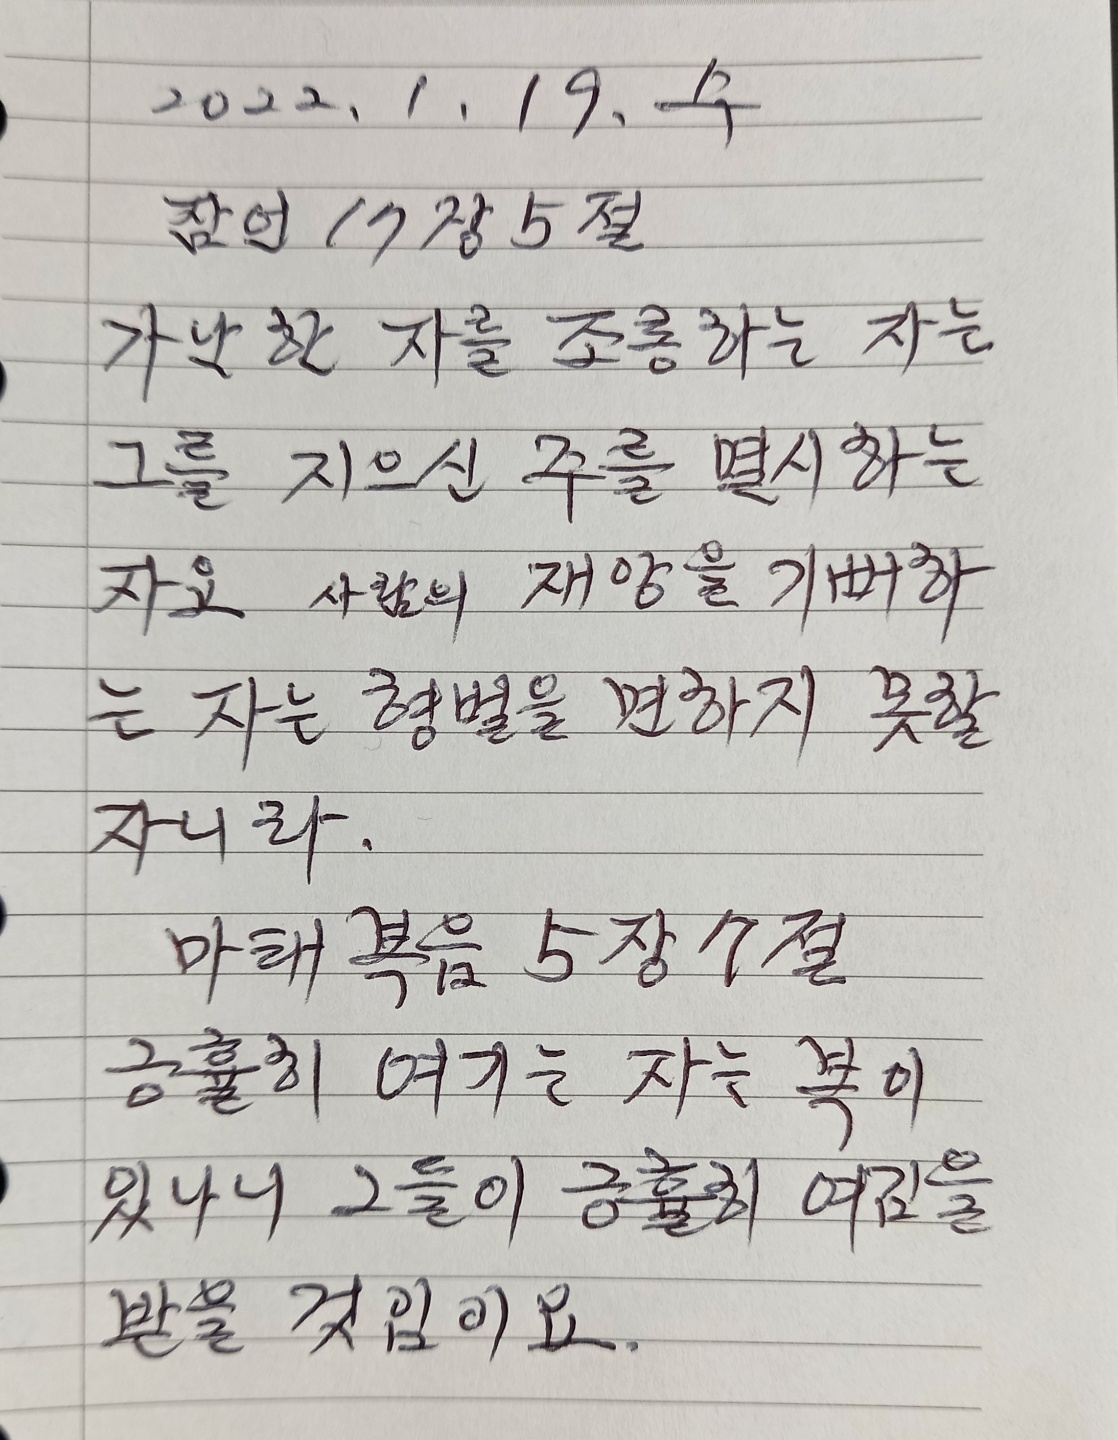 2022. 1. 19. 수
잠언 17장 5절
가난한 자를 조롱하는 자는
그를 지으신 주를 멸시하는
자요 사람의 재앙을 기뻐하
는 자는 형벌을 면하지 못할
자니라.
마태복음 5장 7절
긍휼히 여기는 자는 복이
있나니 그들이 긍휼히 여김을
받을 것임이요.